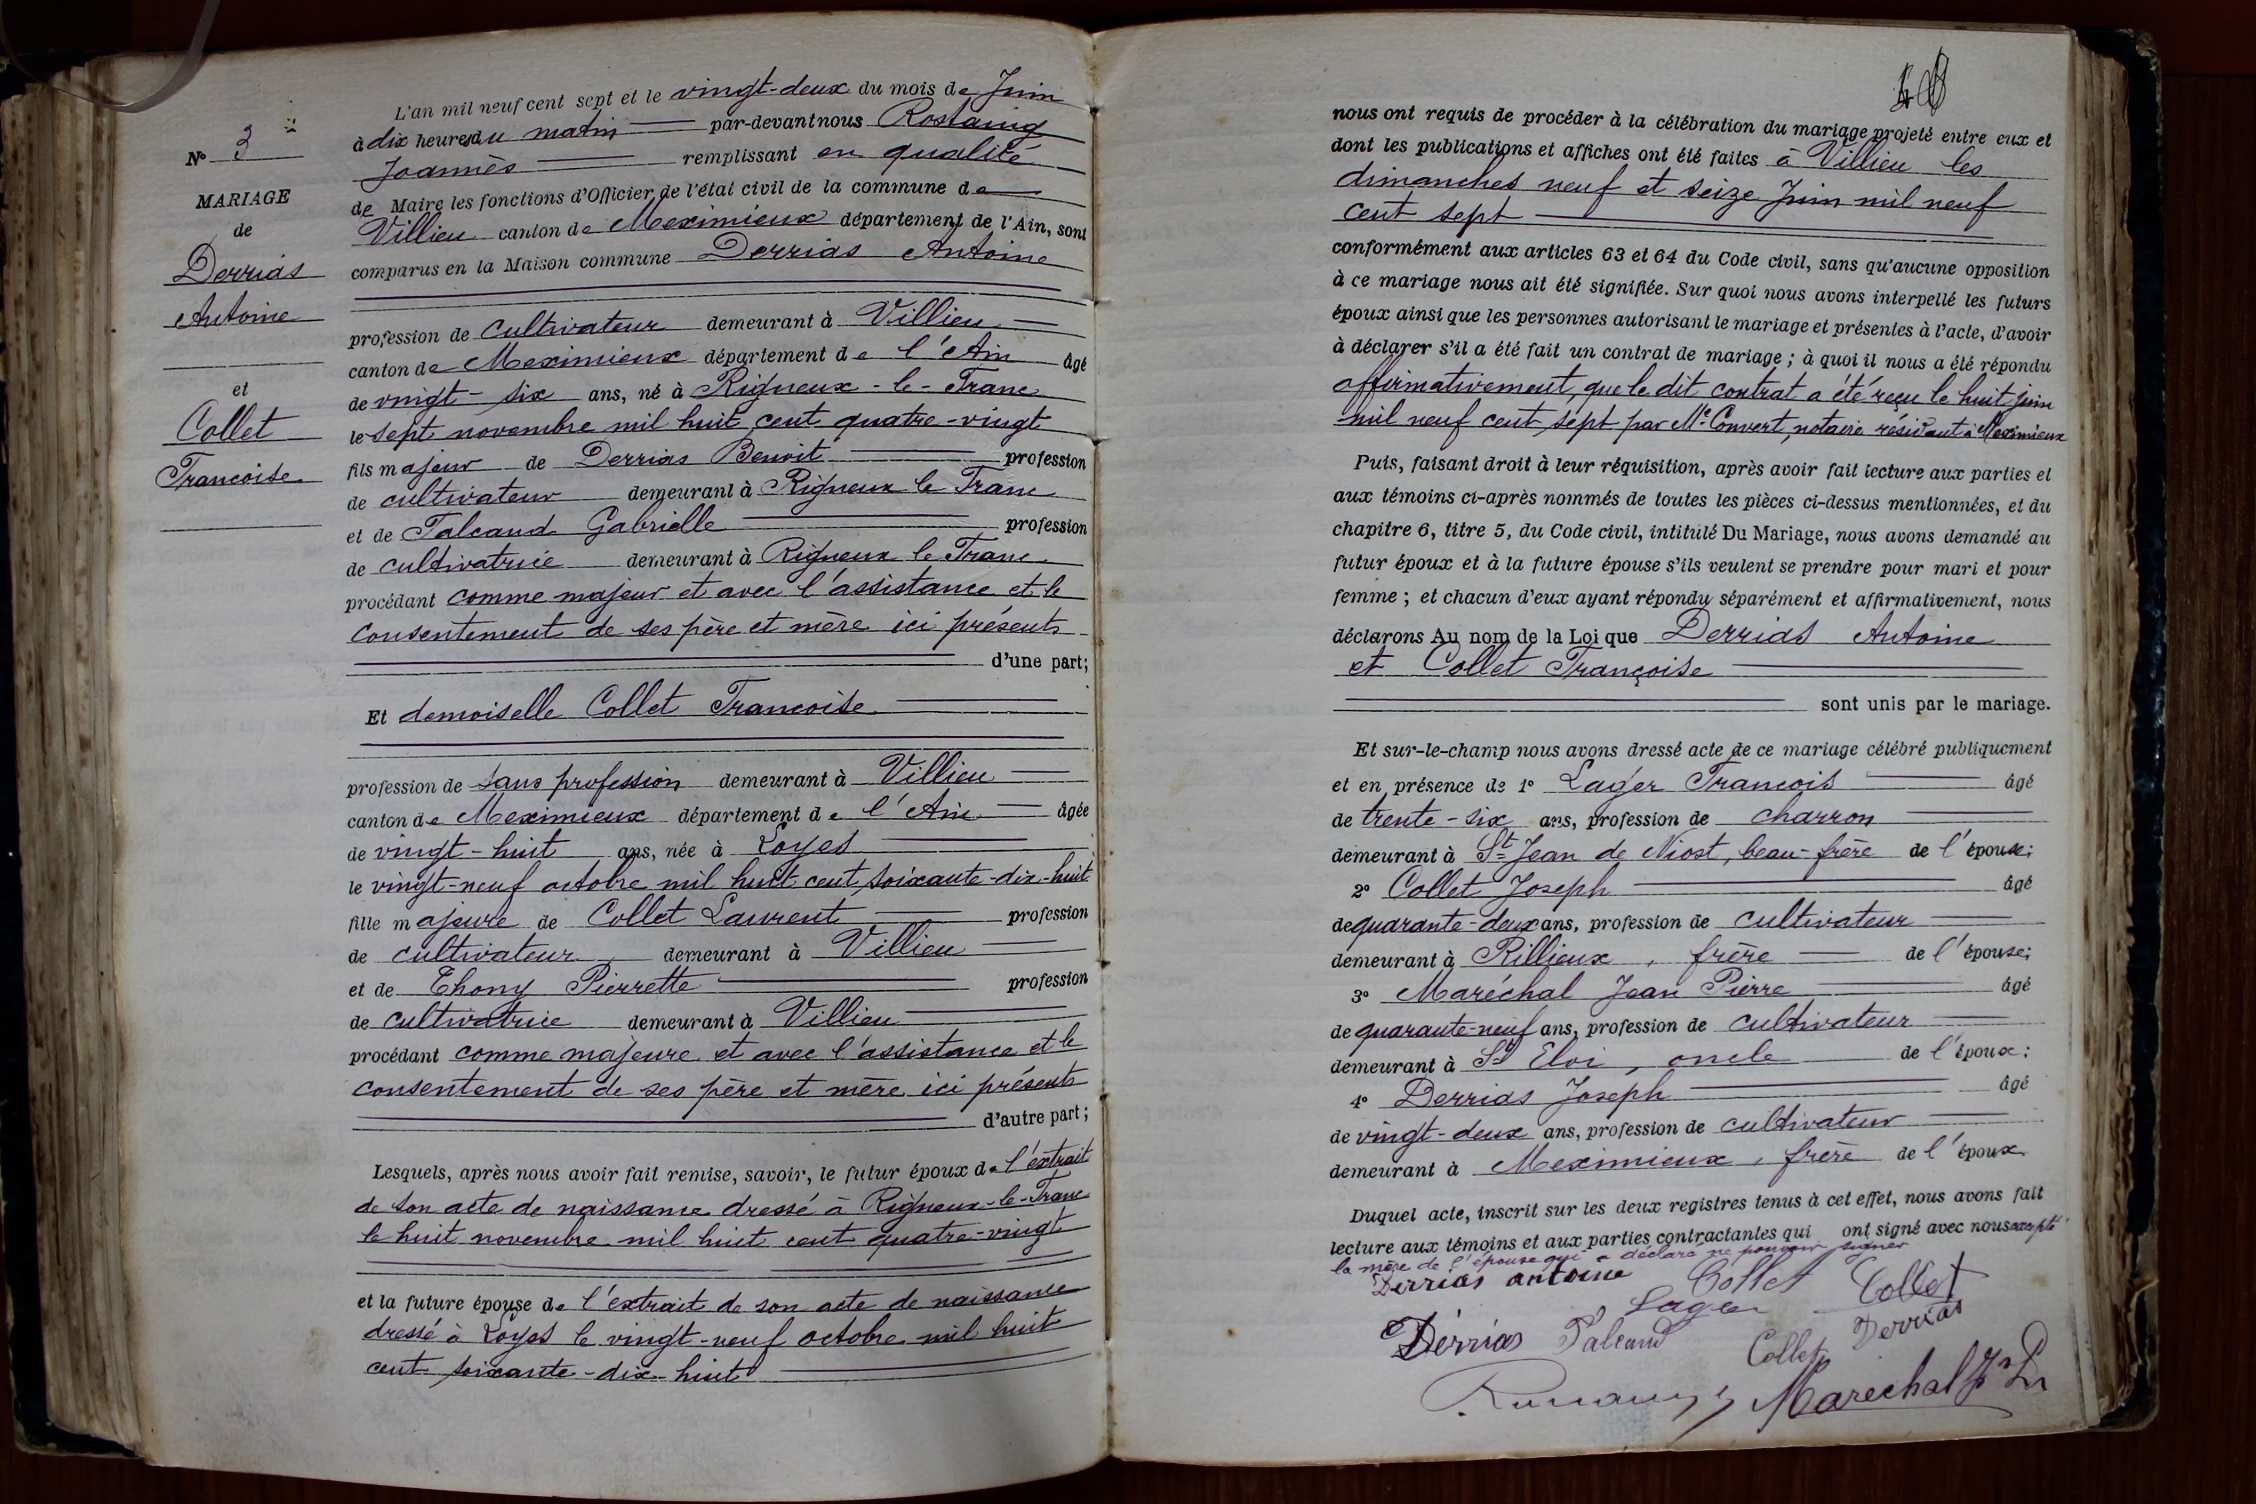 Nº 3
MARIAGE
de
Derrias
Antoine
et
Collet
Francoise
L'an mil neuf cent sept et le vingt-deux du mois de Juin
à dix heures du matin par-devant nous Rostaing
Joannès remplissant en qualité
de Maire les fonctions d'Officier de l'état civil de la commune de
Villieu canton de Meximieux département de l'Ain, sont
comparus en la Maison commune Derrias Antoine
profession de cultivateur demeurant à Villieu
canton de Meximieux département de l'Ain âgé
de vingt-six ans, né à Rigneux-le-Franc
le sept novembre mil huit cent quatre-vingt
fils majeur de Derrias Benoit profession
de cultivateur demeurant à Rigneux le Franc
et de Falcand Gabrielle profession
de cultivatrice demeurant à Rigneux le Franc
procédant comme majeur et avec l'assistance et le
consentement de ses père et mère ici présents
d'une part;
Et demoiselle Collet Francoise
profession de sans profession demeurant à Villieu
canton de Meximieux département de l'Ain âgée
de vingt-huit ans, née à Loyes
le vingt-neuf octobre mil huit cent soixante-dix-huit
fille majeure de Collet Laurent profession
de cultivateur demeurant à Villieu
et de Thony Pierrette profession
de cultivatrice demeurant à Villieu
procédant comme majeure et avec l'assistance et le
consentement de ses père et mère ici présents
d'autre part;
Lesquels, après nous avoir fait remise, savoir, le futur époux de l'extrait
de son acte de naissance dressé à Rigneux-le-Franc
le huit novembre mil huit cent quatre-vingt
et la future épouse de l'extrait de son acte de naissance
dressé à Loyes le vingt-neuf octobre mil huit
cent soixante-dix-huit
nous ont requis de procéder à la célébration du mariage projeté entre eux et
dont les publications et affiches ont été faites à Villieu les
dimanches neuf et seize Juin mil neuf
cent sept
conformément aux articles 63 et 64 du Code civil, sans qu'aucune opposition
à ce mariage nous ait été signifiée. Sur quoi nous avons interpellé les futurs
époux ainsi que les personnes autorisant le mariage et présentes à l'acte, d'avoir
à déclarer s'il a été fait un contrat de mariage; à quoi il nous a été répondu
affirmativement, que le dit contrat a été reçu le huit juin
mil neuf cent sept par Me Convert, notaire résidant à Meximieux
Puis, faisant droit à leur réquisition, après avoir fait lecture aux parties et
aux témoins ci-après nommés de toutes les pièces ci-dessus mentionnées, et du
chapitre 6, titre 5, du Code civil, intitulé Du Mariage, nous avons demandé au
futur époux et à la future épouse s'ils veulent se prendre pour mari et pour
femme; et chacun d'eux ayant répondu séparément et affirmativement, nous
déclarons Au nom de la Loi que Derrias Antoine
et Collet Françoise
sont unis par le mariage.
Et sur-le-champ nous avons dressé acte de ce mariage célébré publiquement
et en présence de 1º Lager Francois âgé
de trente-six ans, profession de charron
demeurant à St Jean de Niost, beau-frère de l'épouse;
2º Collet Joseph âgé
de quarante-deux ans, profession de cultivateur
demeurant à Rillieux, frère de l'épouse;
3º Maréchal Jean Pierre âgé
de quarante-neuf ans, profession de cultivateur
demeurant à St Eloi, oncle de l'époux;
4º Derrias Joseph âgé
de vingt-deux ans, profession de cultivateur
demeurant à Meximieux, frère de l'époux
Duquel acte, inscrit sur les deux registres tenus à cet effet, nous avons fait
lecture aux témoins et aux parties contractantes qui ont signé avec nous excepté
la mère de l'épouse qui a déclaré ne pouvoir signer
Derrias antoine Collet Collet
Lager
Dérrias Falcand Collet Derrias
Marechal